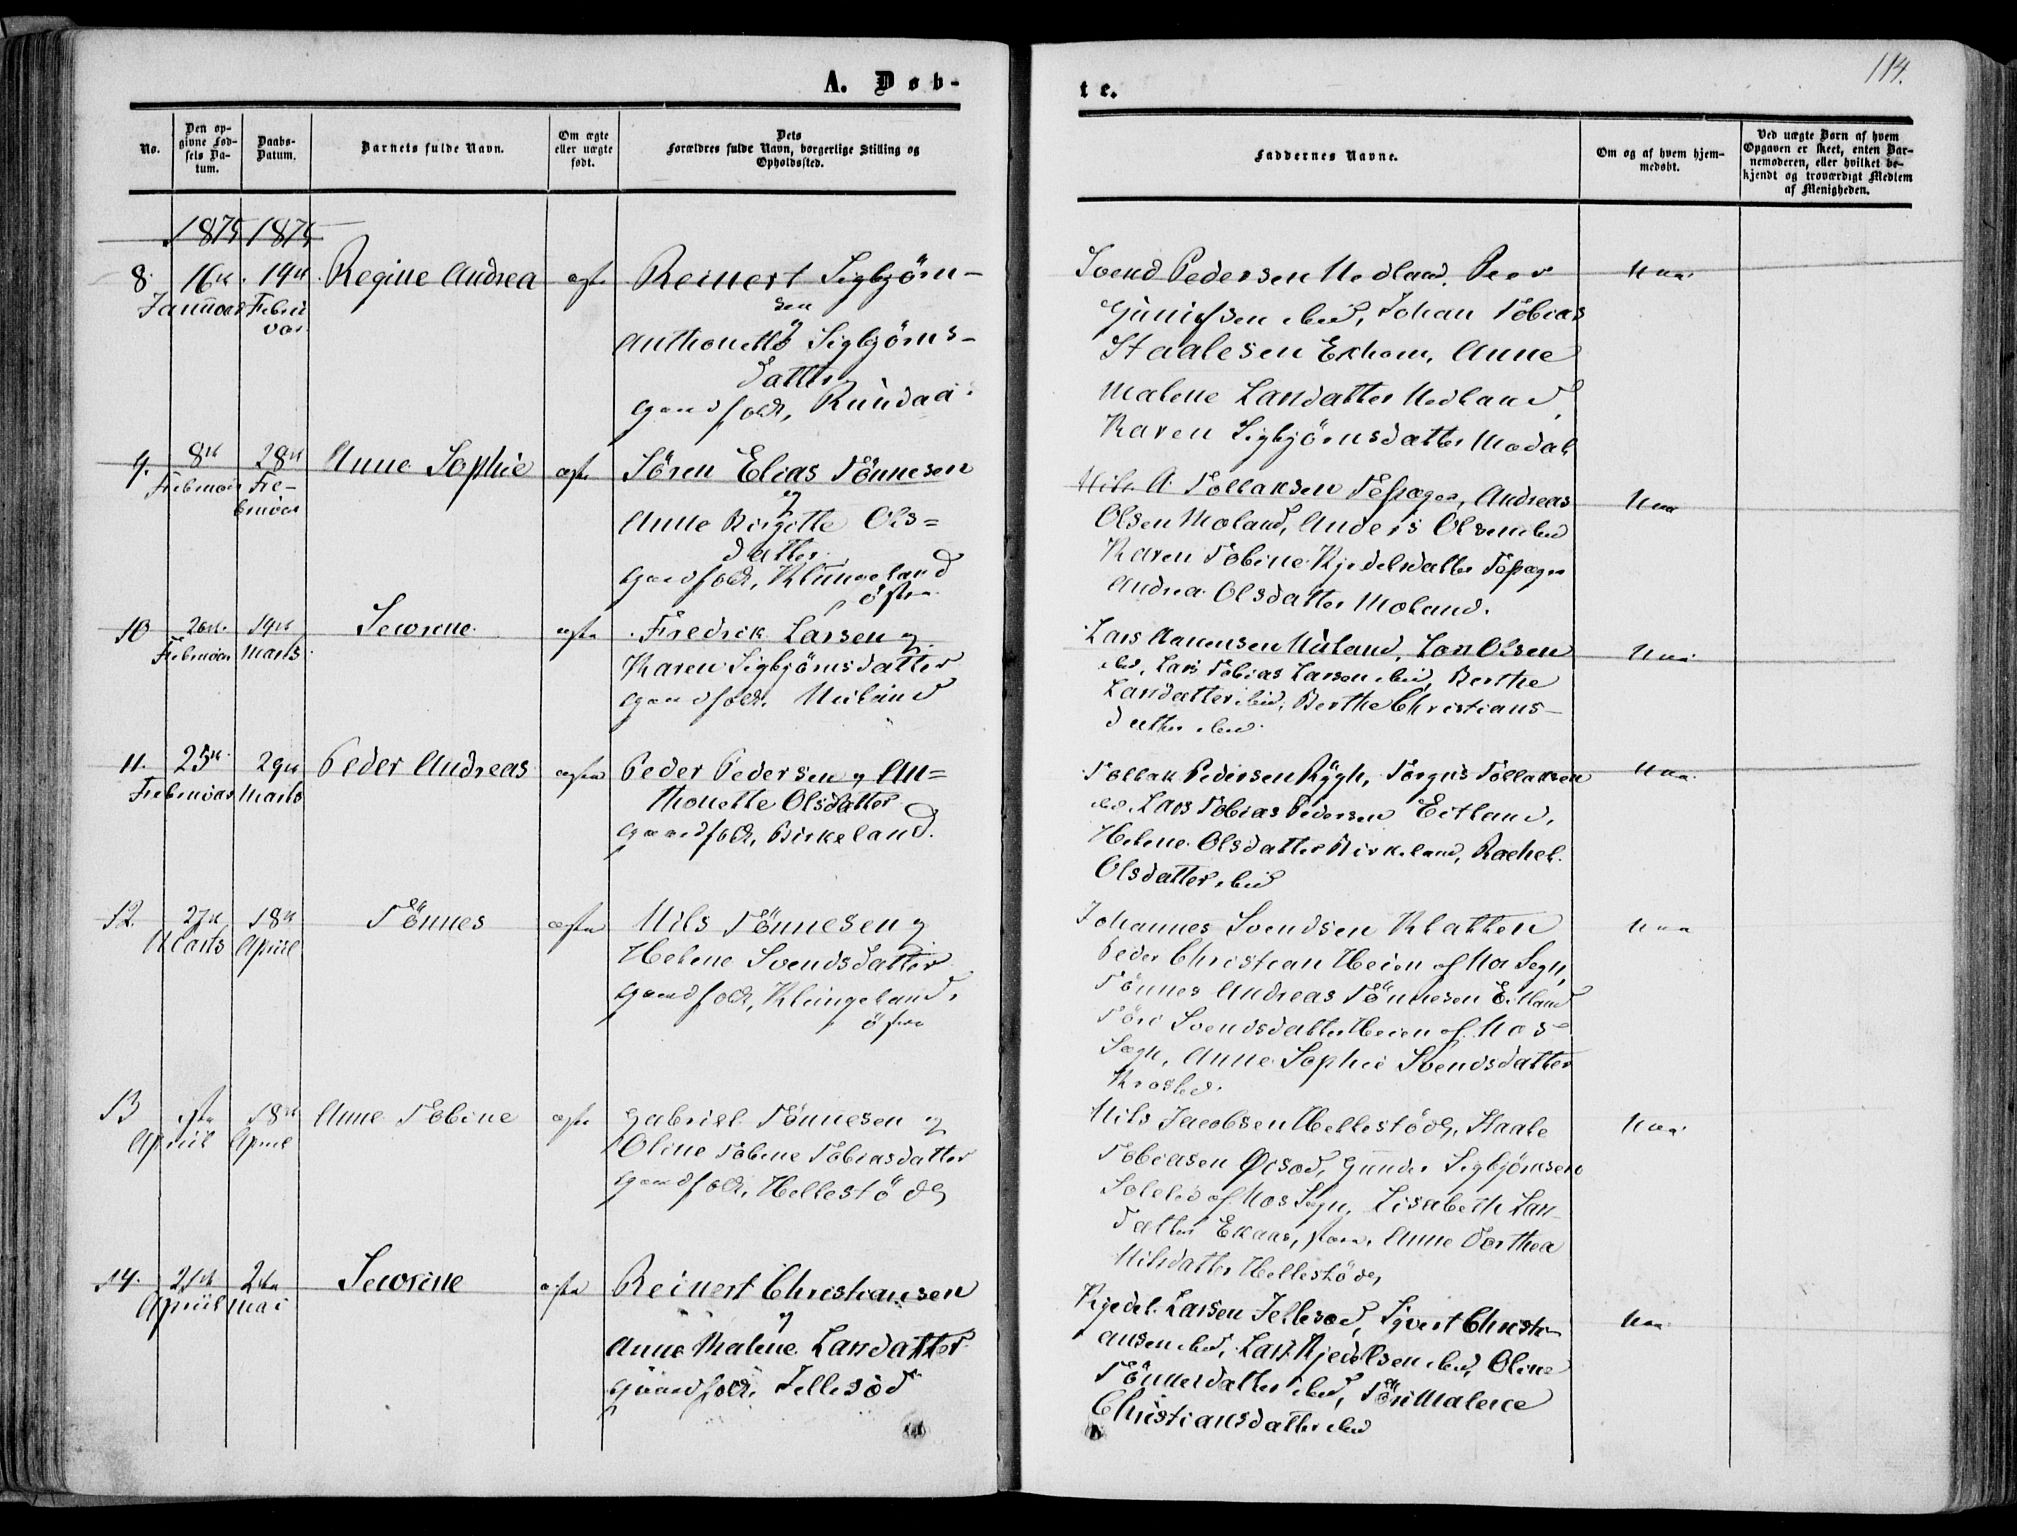 A. Døb-
te.
114.
No.
Den op-
givne Fød-
sels Da-
tum.
Daabs-
Datum.
Barnets fulde Navn.
Om ægte
eller uægte
født.
Dets
Forældres fulde Navn, borgerlige Stilling og
Opholdssted.
Faddernes Navne.
Om og af hvem hjem-
medøbt.
Ved uægte Børn af hvem
Opgaven er skeet, enten Bar-
nemoderen, eller hvilket be-
kjendt og troværdigt Medlem
af Menigheden.
1875 1875
8. 16de 14de Regine Andrea ægte Reinert Sigbjörn-
Januar Febru
sen
var
og
Anthonette Sigbjörns-
datter
Gaardfolk, Rundaa
Svend Pedersen Nedland, Peer
ibid, Johan Tobias
Staalesen Anne
Malene Larsdatter Nedland,
Karen Sigbjörnsdatter Modal
Naa
9. 8de 28de Anne Sophie ægte Sören Elias Tönnesen
Februar Fe-
bruar
og
Anne Birgitte Ols=
datter
Gaardfolk, Klungeland
östre
Nils A. Tollaksen Andreas
Olsen Moland, Anders Olsen ibid
Karen Tobine Kjedelsdatter
Andrea Olsdatter Moland.
Naa
10 26de 19de Sewrine ægte Fredrik Larsen og
Februar Marts
Karen Sigbjörnsdatter
Gaardfolk,
Lars Olsen
ibid, Lars Tobias Larsen ibid, Berthe
Larsdatter ibid, Berthe Christians-
datter ibid.
Naa
11. 25de 29de Peder Andreas ægte Peder Pedersen og An=
Februar Marts
thonette Olsdatter
Gaardfolk, Birkeland.
Tollak Pedersen Rygh, Torgris Tollaksen
ibid, Lars Tobias Pedersen Eitland,
Helene Olsdatter Birkeland, Rachel
Olsdatter ibid
Naa
12. 27de 18de Tönnes ægte Nils Tönnesen og
Marts April
Helene Svendsdatter
Gaardfolk, Klungeland,
östre
Johannes Svendsen Klakken
Peder Christian Heien af Nos Sogn,
Tönnes Andreas Tönnesen Eitland
Töri Svendsdatter Heien af Nos
Sogn, Anne Sophie Svendsdatter
Naa
13 1ste 18de Anne Tobine ægte Gabriel Tönnesen og
April April
Oline Tobine Tobiasdatter
Gaardfolk, Hellestöde
Nils Jacobsen Hellestöde, Staale
Tobiasen Gunder Sigbjörnsen
af Nos Sogn, Lisabeth Lars
datter Ekaas, store, Anne Dorthea
Nilsdatter Hellestöde
Naa
14. 21de 2den Sewrine ægte Reinert Christiansen
April Mai
og
Anne Malene Larsdatter
Gaardfolk, Jellesöd
Kjedel Larsen Jellesöd, Syvert Christi-
ansen ibid, Lars Kjedelsen ibid, Oline
Tönnesdatter ibid, Töri Malene
Christiansdatter ibid
Naa